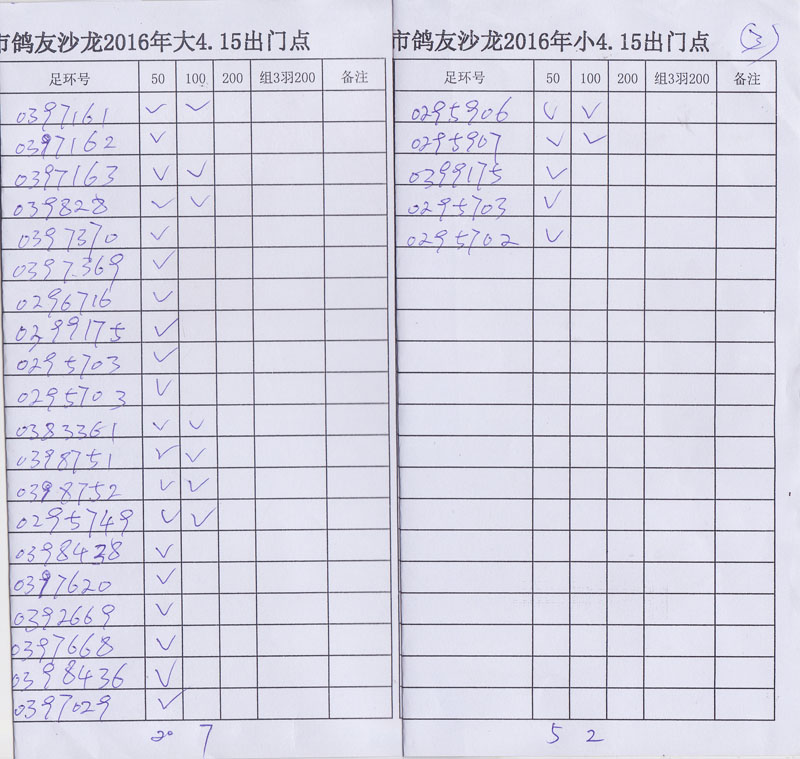 市鸽友沙龙2016年大4.15出门点
足环号 50 100 200 组3羽200 备注
0397161 ✓ ✓
0397162 ✓
0397163 ✓ ✓
039828 ✓ ✓
0397370 ✓
0397369 ✓
0296716 ✓
0299175 ✓
0295703 ✓
0295703 ✓
0383361 ✓ ✓
0398751 ✓ ✓
0398752 ✓ ✓
0295749 ✓ ✓
0398438 ✓
0397620 ✓
0392669 ✓
0397668 ✓
0398436 ✓
0397029 ✓
20 7
市鸽友沙龙2016年小4.15出门点 (3)
足环号 50 100 200 组3羽200 备注
0295906 ✓ ✓
0295907 ✓ ✓
0399175 ✓
0295703 ✓
0295702 ✓
5 2